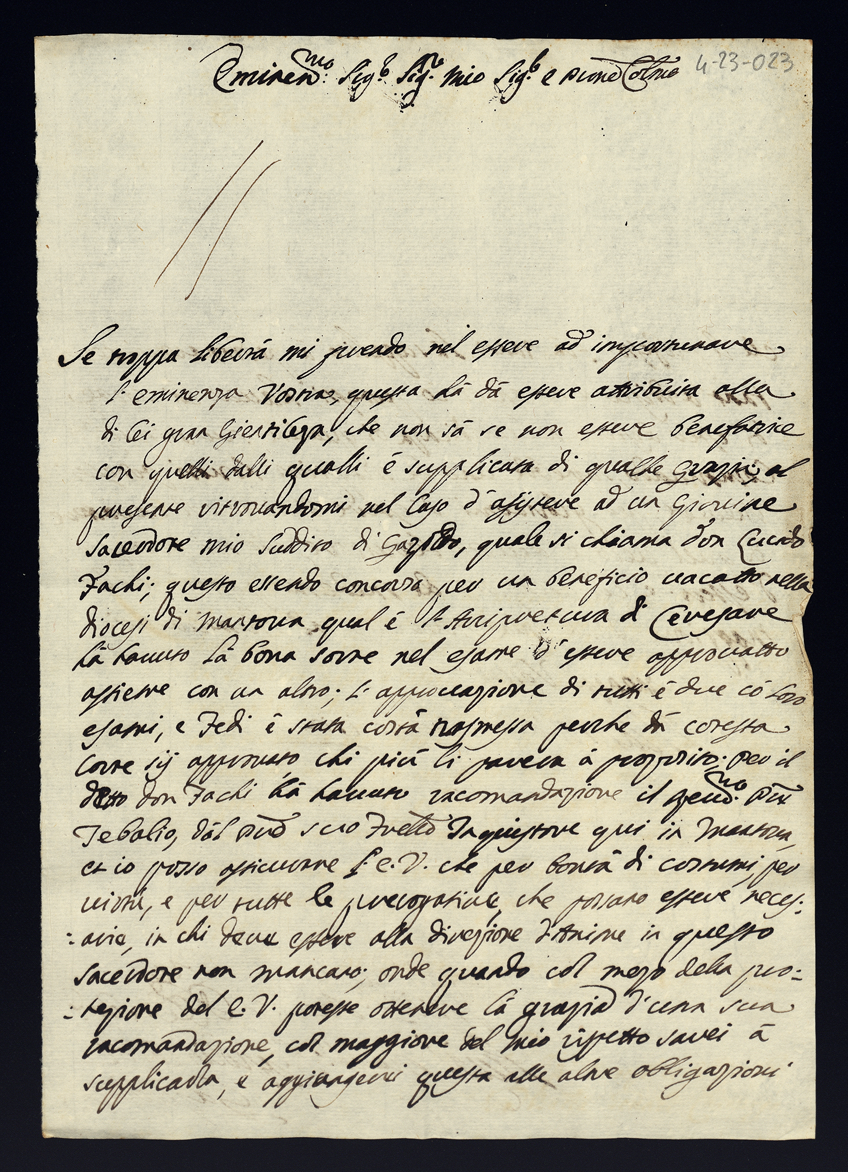 Eminen.mo Sig.r Sig.r mio Sig.r e Prone Colmo 4-23-023
Se troppa libertà mi prendo nel essere ad importunare
l'eminenza Vostra, questa hà dà essere attribuita alla
di lei gran Gientileza, che non sà se non essere benefatrice
con quelli dalli qualli è supplicata di qualche grazie; al
presente ritrovandomi nel caso d'asistere ad un Giovine
sacerdore mio suddito di Gazoldo, quale si chiama don
Fachi; questo essendo concorso per un beneficio vacatto nella
diocesi di Mantova qual è l'Aripretura di Ceresare
hà havuto là bona sorte nel esame d'essere approvatto
assieme con un altro; l'approvazione di tutti è due cò loro
esami, e Fedi è stata costà trasmessa perche dà cotesta
Corte sij approvato chi più li parerà à proposito; per il
detto don Fachi hà havuto racomandazione il
Tebalio, dàl suo Fratello Inquisitore qui in Mantova,
et io posso assicurare l'E.V. che per bontà di costumi, per
e per tutte le prerogative, che possano essere neces:
:arie, in chi deve essere alla direzione d'Anime in questo
sacerdore non mancano; onde quando col mezo della pro=
=tezione del E.V. potesse ottenere là grazia d'una sua
racomandazione, col maggiore del mio rispetto sarei à
supplicarla, e aggiungerei questa alle altre obligazioni